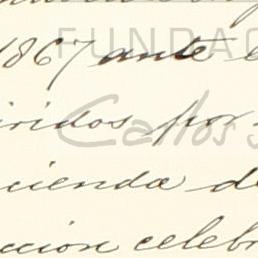 FUNDAC
1867 ante e
iridos por
Carlos S
cienda de
cción celebr